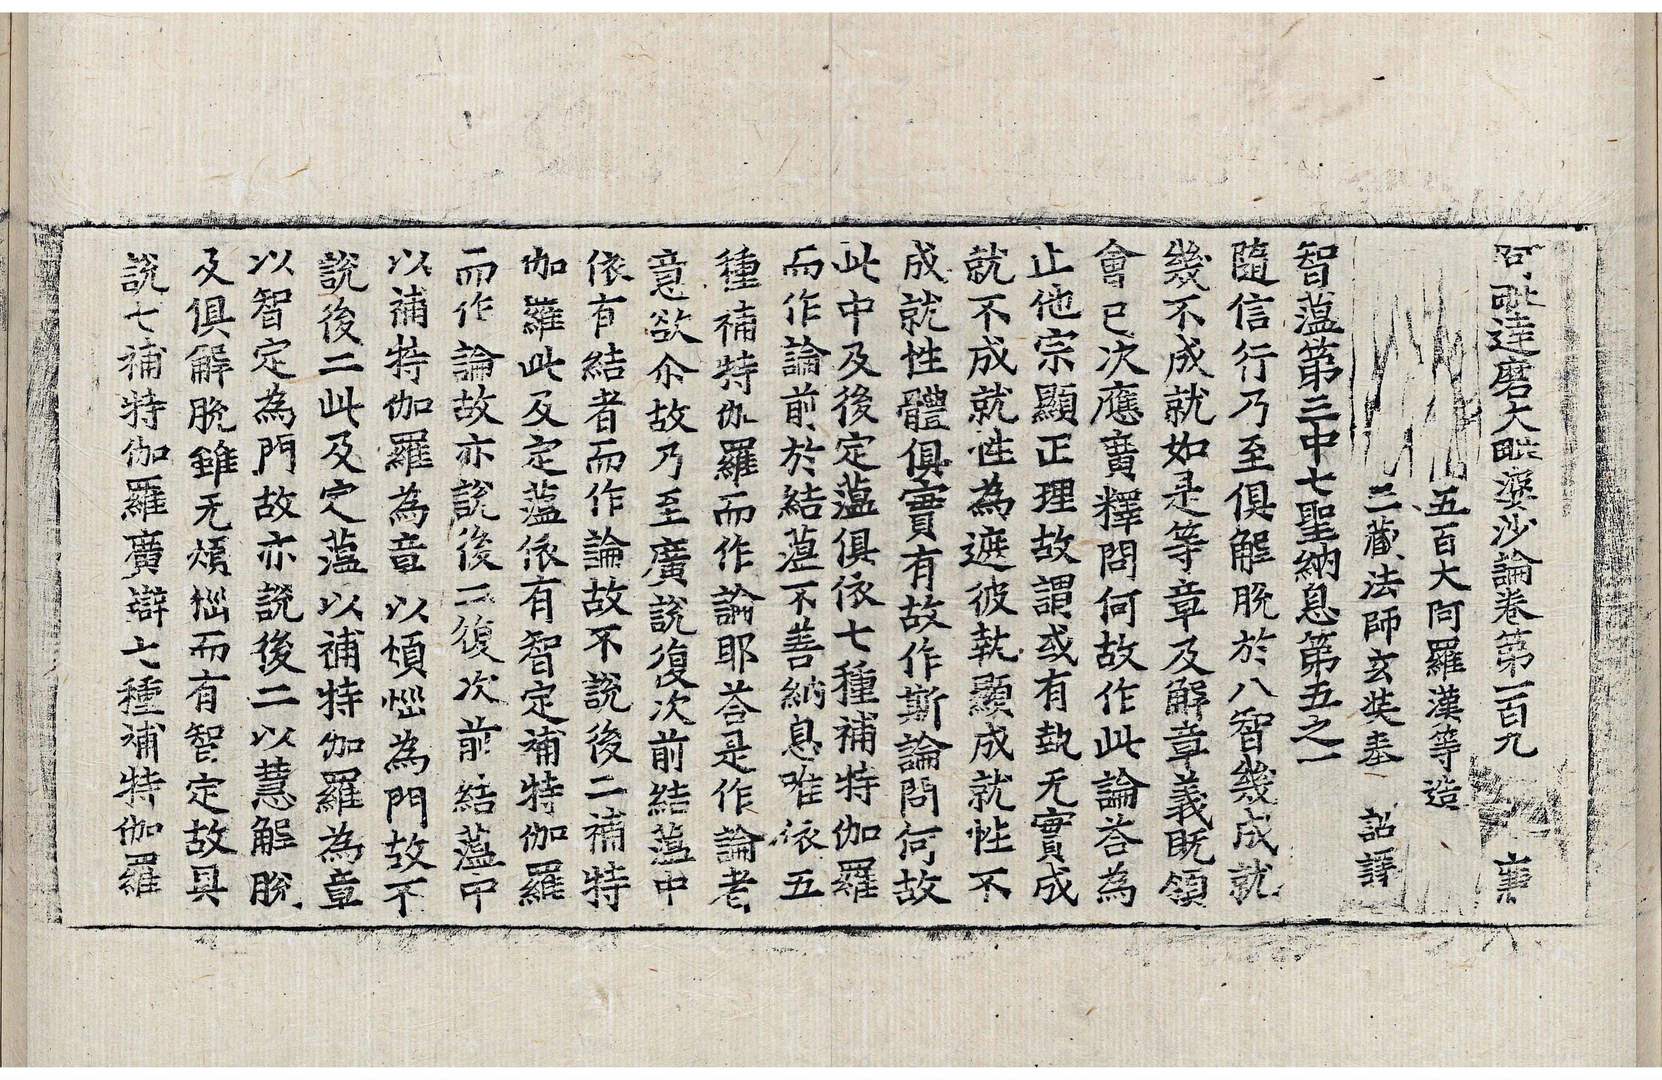 阿毗達磨大毗婆沙論卷第一百九 事
五百大阿羅漢等造
三藏法師玄奘奉 詔譯
智蕰第三中七聖納息第五之一
隨信行乃至俱解脫於八智幾成就
幾不成就如是等章及解章義既領
會已次應廣釋問何故作此論荅為
止他宗顯正理故謂或有執无實成
就不成就性為遮彼執顯成就性不
成就性體俱實有故作斯論問何故
此中及後定蕰俱依七種補特伽羅
而作論前於結蕰不善納息唯依五
種補特伽羅而作論耶荅是作論者
意欲尒故乃至廣說復次前結蕰中
依有結者而作論故不說後二補特
伽羅此及定蕰依有智定補特伽羅
而作論故亦說後二復次前結蕰中
以補特伽羅為章以煩惱為門故不
說後二此及定蕰以補特伽羅為章
以智定為門故亦說後二以慧解脫
及俱解脫雖无煩惱而有智定故具
說七補特伽羅廣辯七種補特伽羅